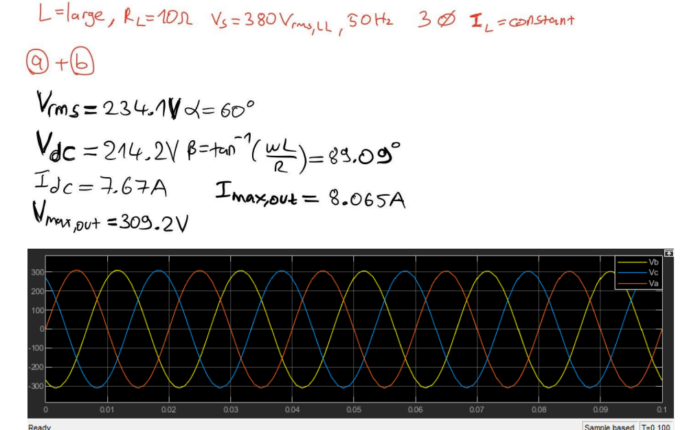 L=large, R_L=10Ω V_s=380V_rms,LL, 50Hz 3Ø I_L=constant
ⓐ+ⓑ
V_rms=234.1V α=60°
V_dc=214.2V β=tan⁻¹(ωL/R)=89.09°
I_dc=7.67A I_max,out=8.065A
V_max,out=309.2V
Vb
Vc
Va
300
200
100
0
-100
-200
-300
0 0.01 0.02 0.03 0.04 0.05 0.06 0.07 0.08 0.09 0.1
Ready Sample based T=0.100